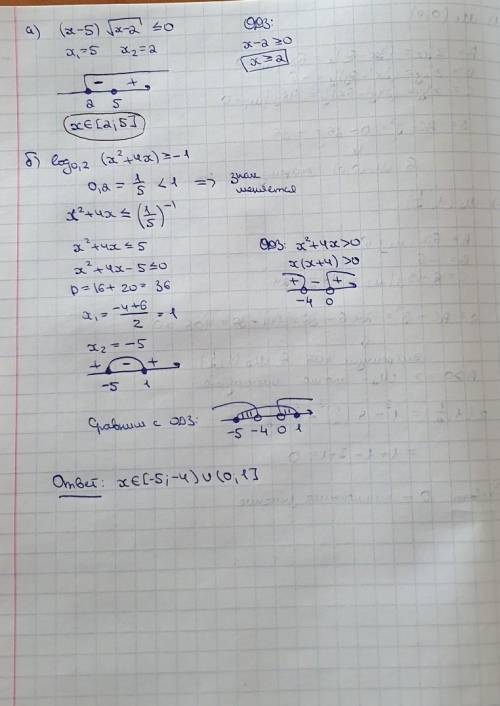 а) (x-5) √x-2 ≤0
ОДЗ:
x₁=5 x₂=2
x-2≥0
x≥2
- +
2 5
x∈[2;5]
б) log₀,₂ (x²+4x)≥-1
0,2 = 1/5 < 1 => знак меняется
x²+4x≤(1/5)⁻¹
x²+4x≤5
x²+4x-5≤0
D=16+20=36
x₁= (-4+6)/2 =1
x₂=-5
+ - +
-5 1
ОДЗ: x²+4x>0
x(x+4)>0
+ - +
-4 0
Сравним с ОДЗ:
-5 -4 0 1
Ответ: x∈[-5;-4)∪(0,1]